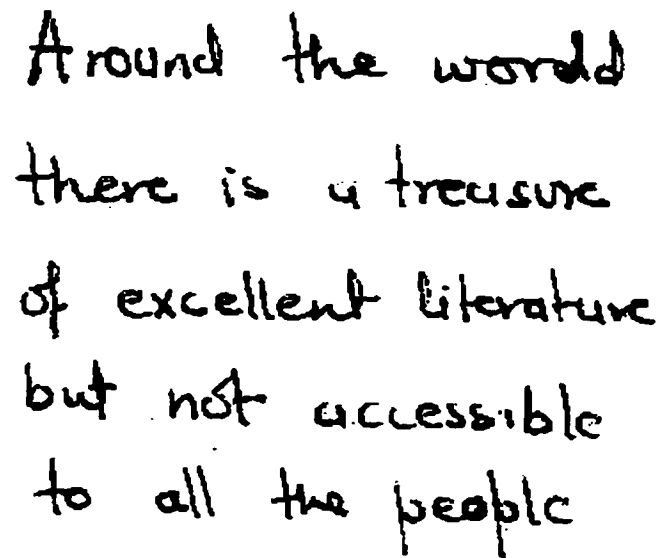 Around the world
there is a treasure
of excellent literature
but not accessible
to all the people